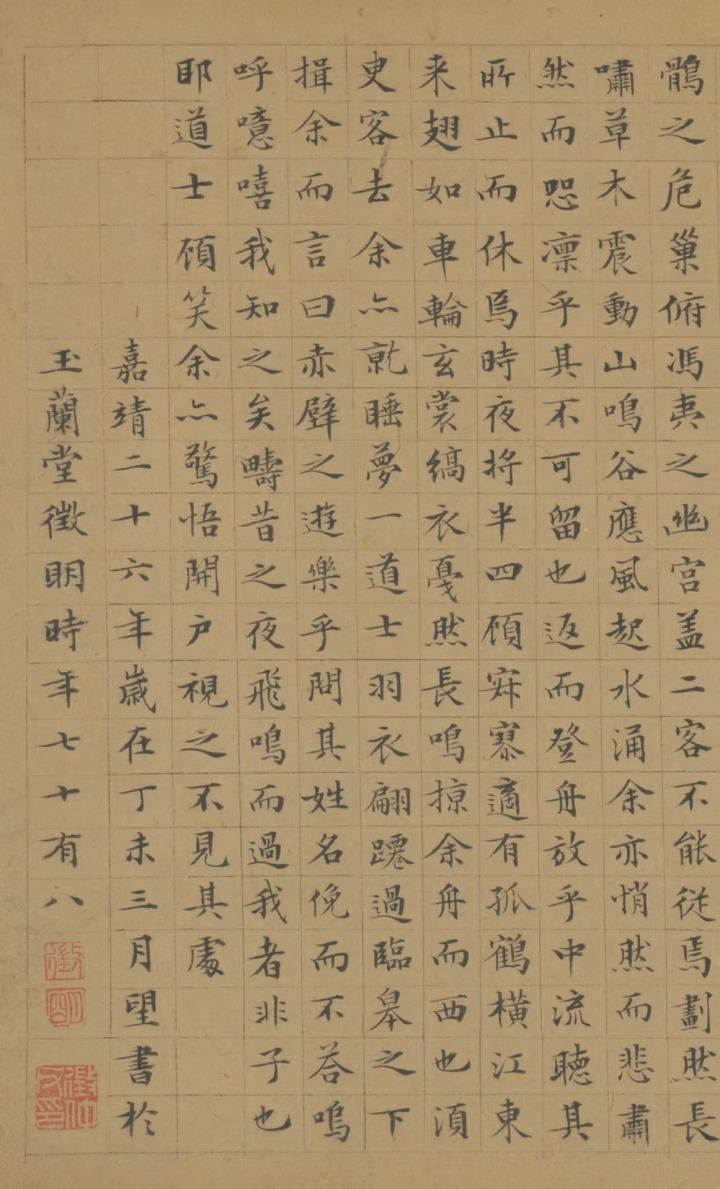 鶻之危巢俯馮夷之幽宮盖二客不能從焉劃然長
嘯草木震動山鳴谷應風起水涌余亦悄然而悲肅
然而恐凛乎其不可留也返而登舟放乎中流聽其
所止而休焉時夜將半四顧寂寥適有孤鶴橫江東
来翅如車輪玄裳縞衣戛然長鳴掠余舟而西也湏
臾客去余亦就睡夢一道士羽衣翩躚過臨皋之下
揖余而言曰赤壁之遊樂乎問其姓名俛而不荅嗚
呼噫嘻我知之矣疇昔之夜飛鳴而過我者非子也
耶道士顧笑余亦驚悟開戶視之不見其處
嘉靖二十六年歲在丁未三月望書於
玉蘭堂徵明時年七十有八
徵明